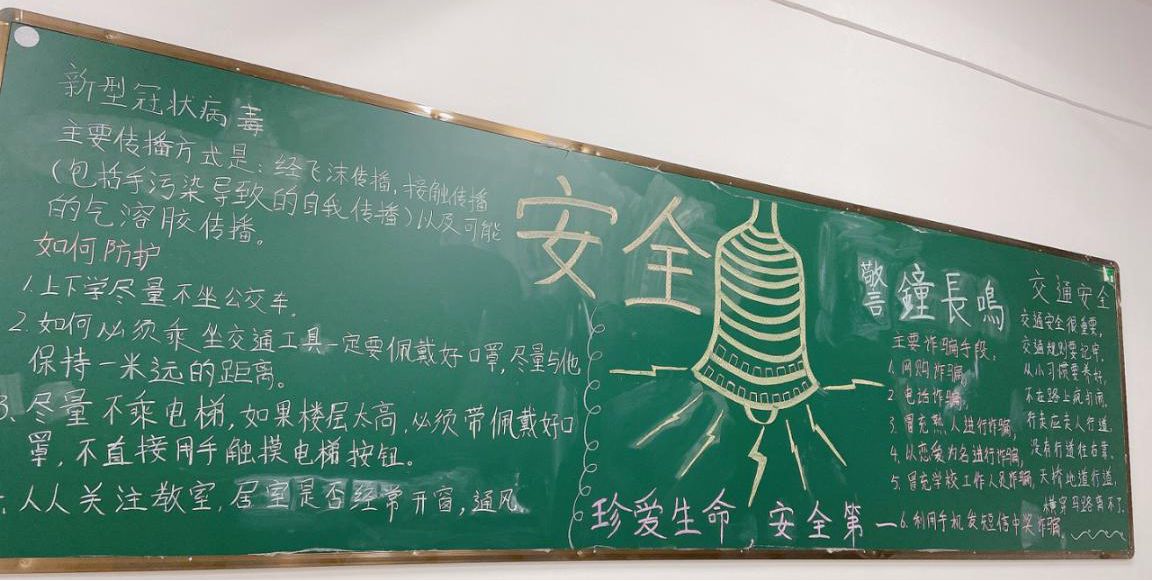 新型冠状病毒
主要传播方式是：经飞沫传播，接触传播
（包括手污染导致的自我传播）以及可能
的气溶胶传播。
如何防护
1.上下学尽量不坐公交车.
2.如何必须乘坐交通工具一定要佩戴好口罩，尽量与他
保持一米远的距离。
3.尽量不乘电梯，如果楼层太高，必须带佩戴好口
罩，不直接用手触摸电梯按钮。
人人关注教室，居室是否经常开窗，通风
安全
珍爱生命，安全第一
警鐘長鳴
主要诈骗手段。
1.网购诈骗
2.电话诈骗，
3.冒充熟人进行诈骗，
4.以恋爱为名进行诈骗，
5.冒充学校工作人员诈骗，
6.利用手机发短信中奖诈骗。
交通安全
交通安全很重要，
交通规则要记牢，
从小习惯要养好，
不在路上疯打闹，
行走应走人行道，
没有行道往右靠、
天桥地道行道，
横穿马路背不了.